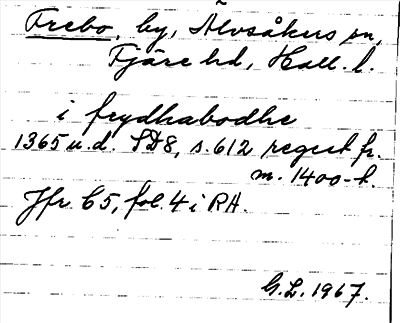 Frebo, by, Älvsåkers sn,
Fjäre hd, Hall. l.
i frydhabodhe
1365 u.d. SD 8, s. 612 regest fr.
m. 1400-t.
Jfr. C 5, fol. 4 i RA.
G.L. 1967.